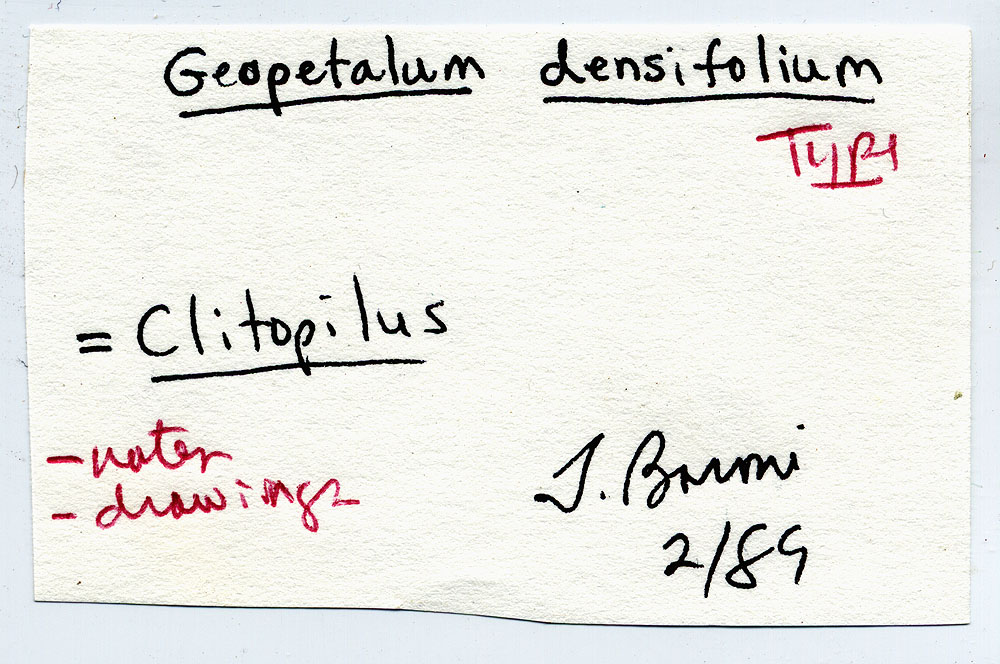 Geopetalum densifolium
Type
= Clitopilus
- notes
- drawings
T. Baroni
2/89